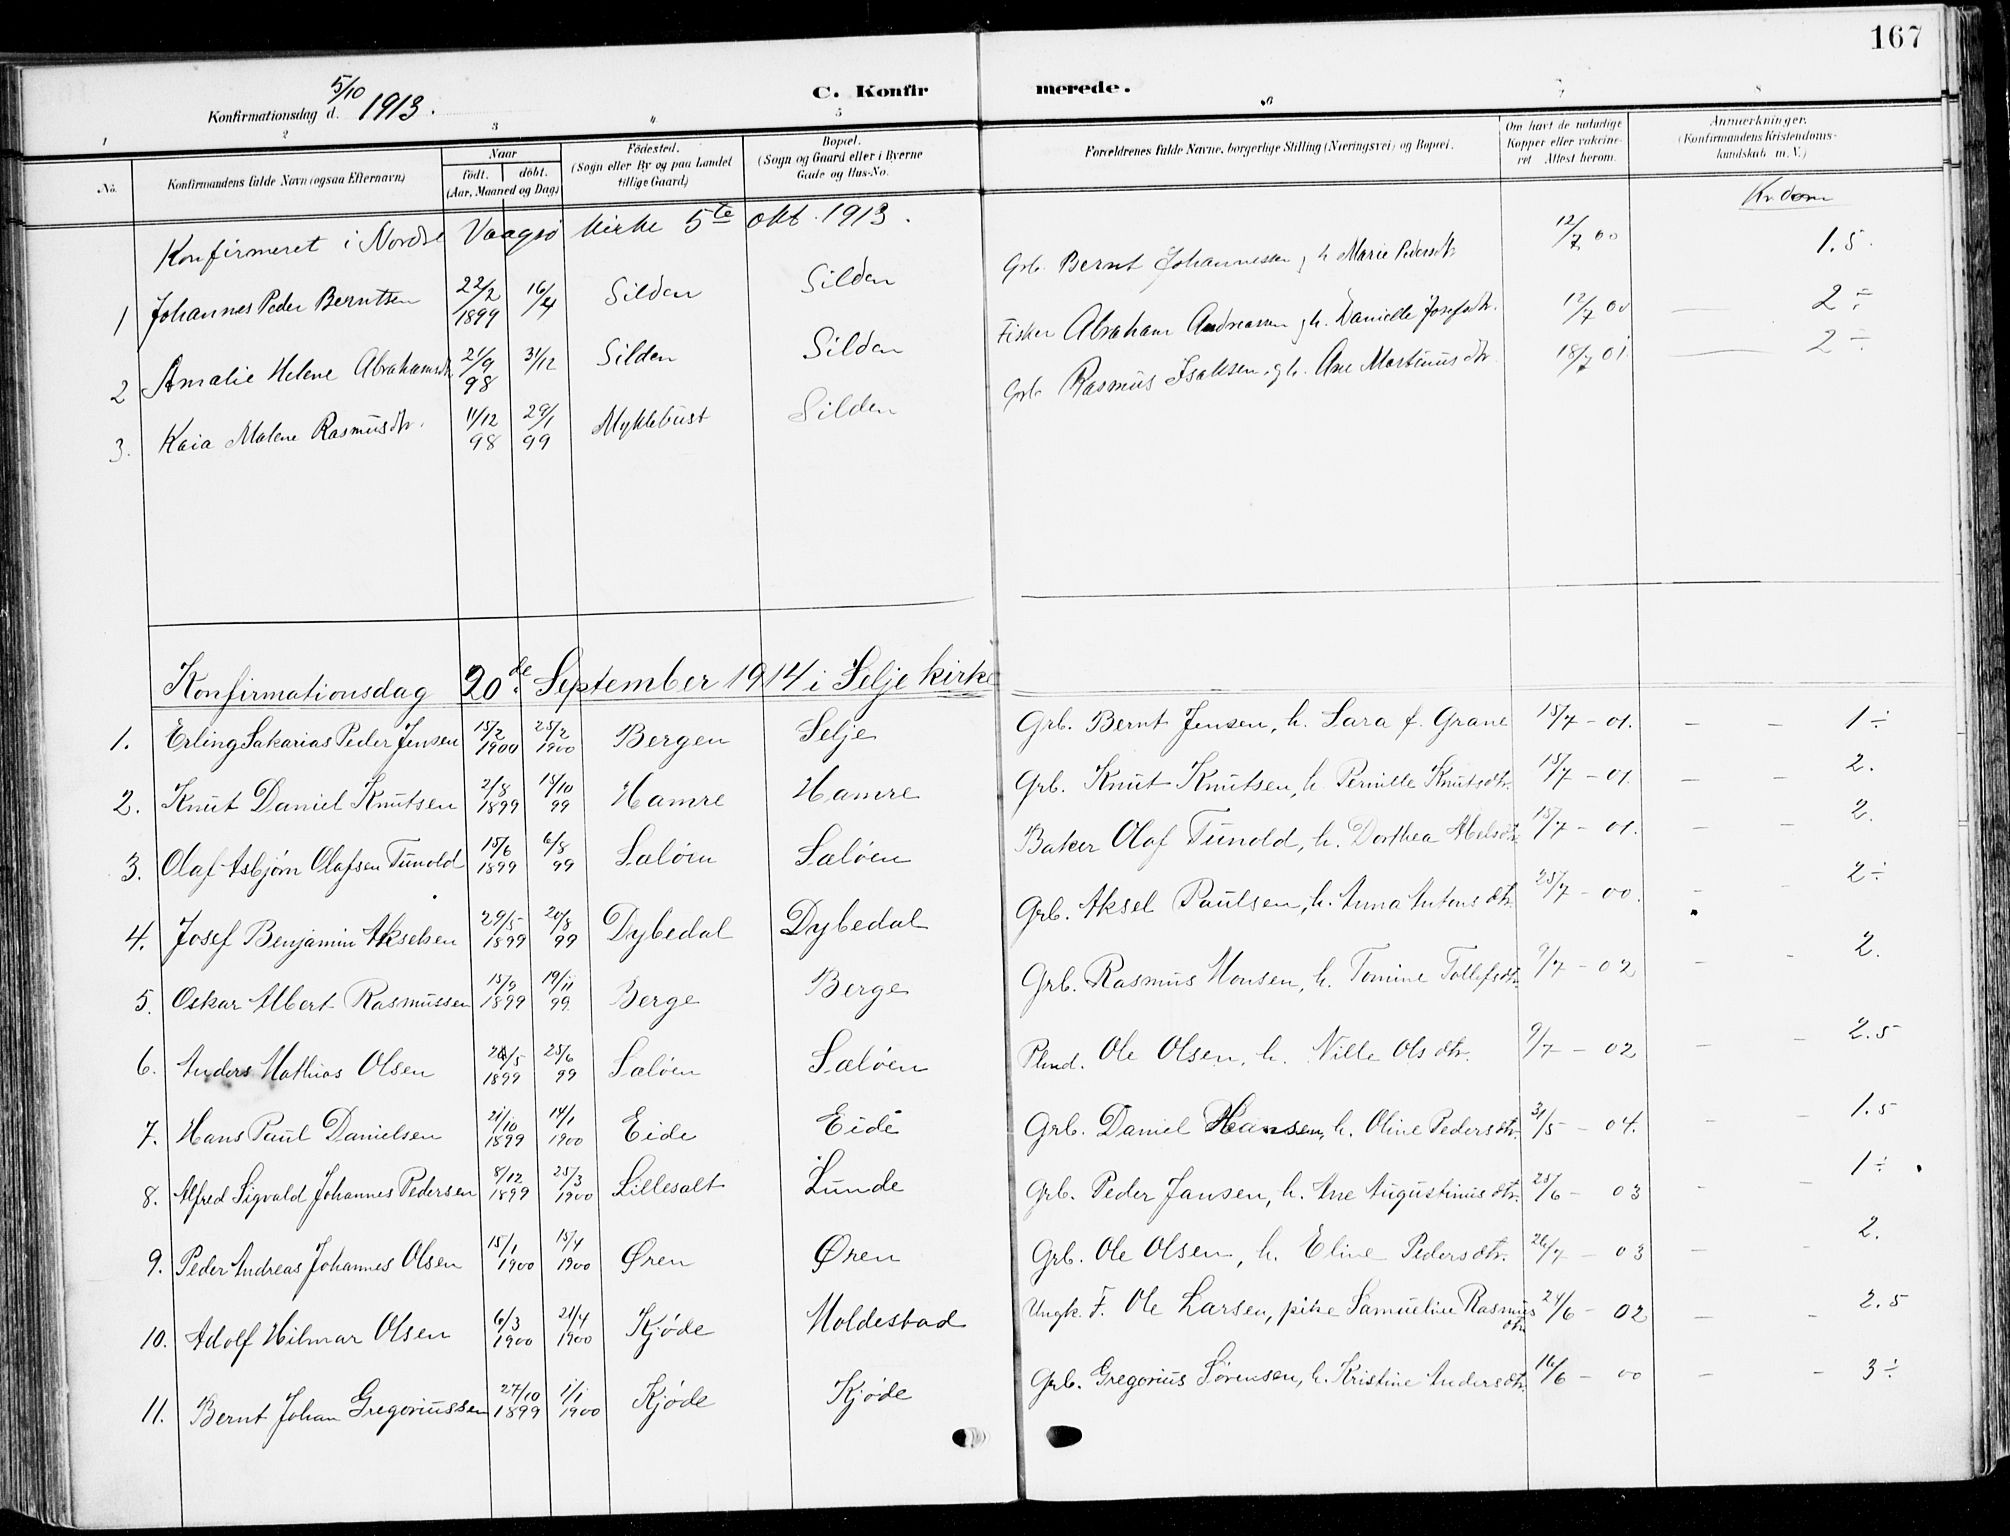 167
C. Konfirmerede.
Konfirmationsdag d. 5/10 1913.
1 2 3 4 5 6 7 8
No.
Konfirmandens fulde Navn (ogsaa Efternavn)
Naar
født. døbt.
(Aar, Maaned og Dag)
Fødested.
(Sogn eller By og paa Landet
tillige Gaard)
Bopæl.
(Sogn og Gaard eller i Byerne
Gade og Hus-No.
Forældrenes fulde Navne, borgerlige Stilling (Næringsvei) og Bopæl.
Om havt de naturlige
Kopper eller vakcine-
ret Attest herom.
Anmærkninger.
(Konfirmandens Kristendoms-
kundskab m. V.)
Kr.dom
Konfirmeret i Nordre Vaagsø kirke 5te okt. 1913.
1 Johannes Peder Berntsen 22/2 1899 16/4 Silden Silden Grb. Bernt Johannessen g h Marie Pedersdtr 12/7 00 1.5.
2 Amalie Helene Abrahamsdtr 21/9 98 31/12 Silden Silden Fisker Abraham Andreassen g h. Danielle Josefsdtr. 12/7 00 — 2 ÷
3. Kaia Malene Rasmusdtr. 11/12 98 29/1 99 Myklebust Silden Grb Rasmus Isaksen. g h. Ane Martinusdtr 18/7 01. — 2 ÷
Konfirmationsdag 20de. September 1914 i Selje kirke
1. Erling Sakarias Peder Jensen 15/2 1900 25/2 1900 Bergen Selje Grb. Bernt Jensen, h. Sara f. Grane 15/7 - 01. - - 1 ÷
2. Knut Daniel Knutsen 2/8 1899 15/10 99 Hamre Hamre Grb. Knut Knutsen, h. Pernille Knutsdtr. 15/7 - 01. - - 2.
3. Olaf Asbjørn Olafsen Tunold 15/6 1899 6/8 99 Sæløen Sæløen Baker Olaf Tunold, h. Dorthea Abelsdtr. 15/7 - 01. - - 2.
4. Josef Benjamin Akselsen 29/5 1899 20/8 99 Dybedal Dybedal Grb. Aksel Paulsen, h. Anna Antonsdtr 25/7 - 00. - - 2 ÷
5. Oskar Albert Rasmussen 15/9 1899 19/11 99. Berge Berge Grb. Rasmus Hansen, h. Tomine Tollefsdtr. 9/7 - 02 - - 2.
6. Anders Mathias Olsen /5 1899 25/6 99 Sæløen Sæløen Plmd. Ole Olsen, h. Nille Olsdtr. 9/7 - 02 - - 2.5
7. Hans Paul Danielsen 21/10 1899 14/1 1900 Eide Eide Grb. Daniel Hansen, h. Oline Pedersdtr. 31/5 - 04. - - 1.5
8. Alfred Sigvald Johannes Pedersen 8/12 1899 25/3 1900 Lillesalt Lunde Grb. Peder Jansen, h. Ane Augustinusdtr. 25/6 - 03 - - 1 ÷
9. Peder Andreas Johannes Olsen 15/1 1900 15/4 1900 Øren Øren Grb. Ole Olsen, h. Eline Pedersdtr. 26/7 - 03 - - 2.
10. Adolf Hilmar Olsen 6/3 1900 21/4 1900 Kjøde Moldestad Ungk. F. Ole Larsen, pike Samueline Rasmusdtr 24/6 - 02 - - 2.5
11. Bernt Johan Gregoriussen 27/10 1899 1/1 1900 Kjøde Kjøde Grb. Gregorius Sørensen, h. Kristine Andersdtr. 16/6 - 00 - - 3 ÷